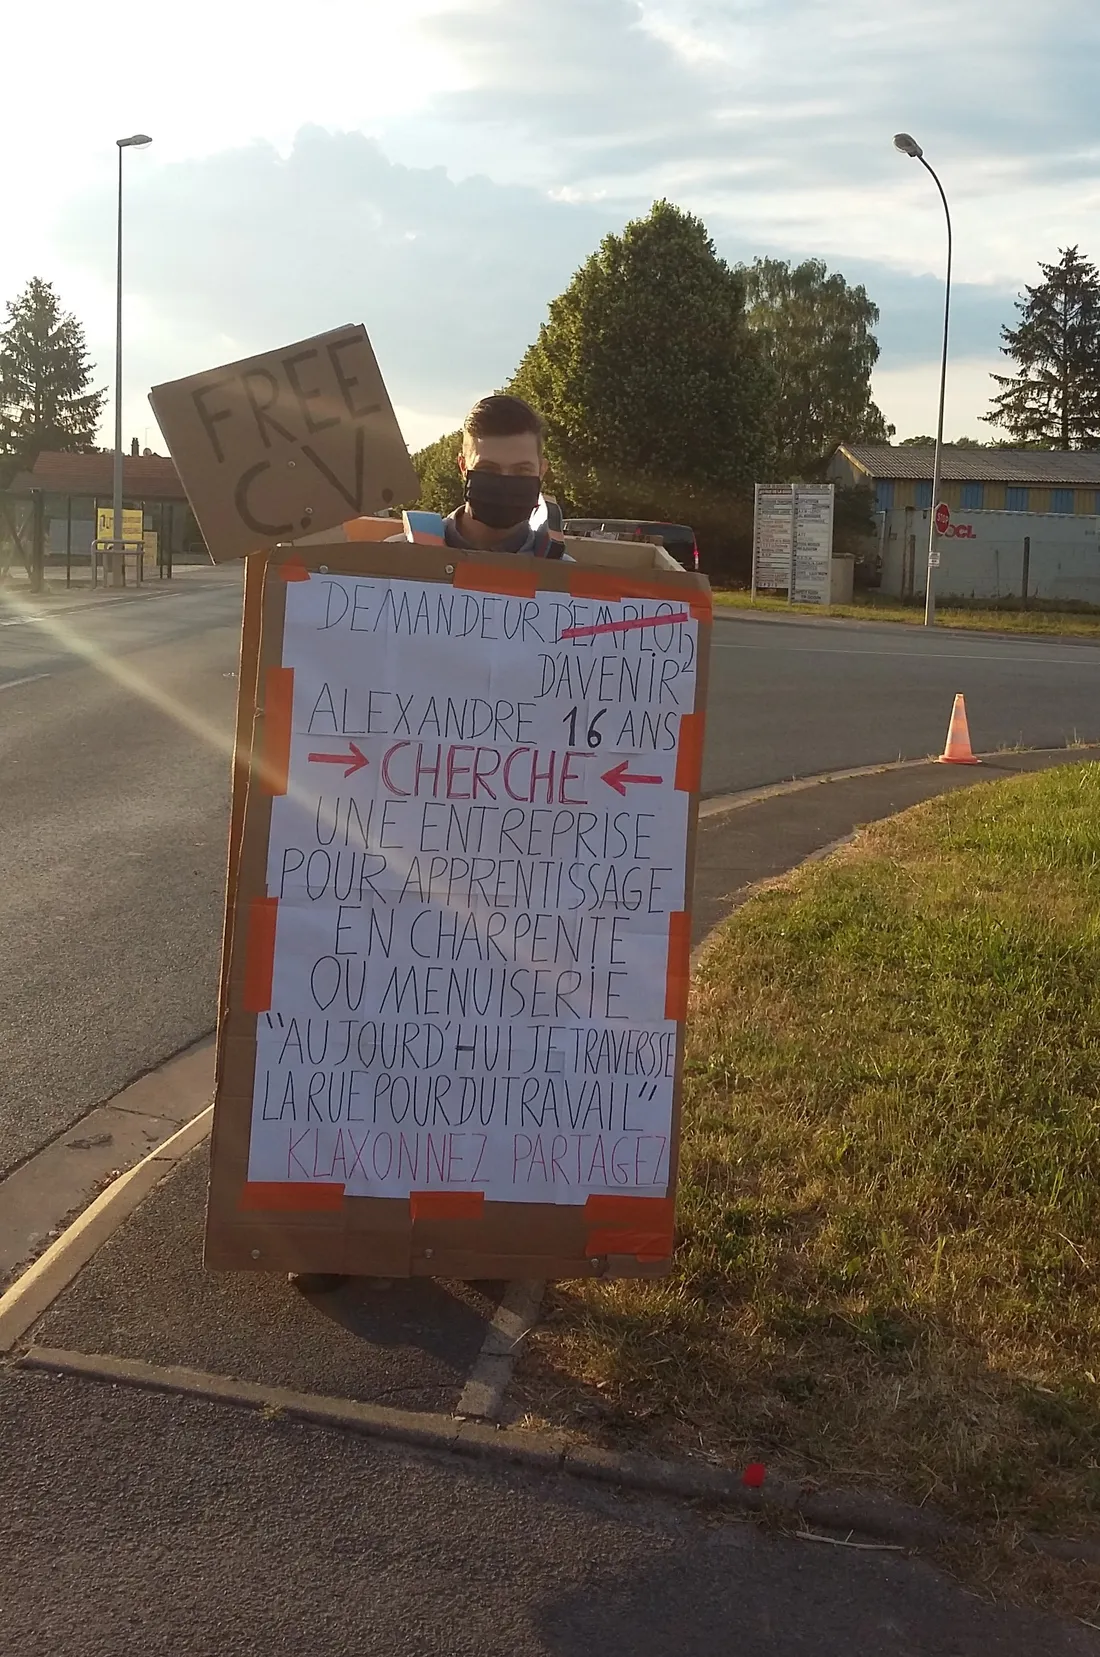 FREE
C.V.
DEMANDEUR D'EMPLOI,
D'AVENIR
ALEXANDRE 16 ANS
→ CHERCHE ←
UNE ENTREPRISE
POUR APPRENTISSAGE
EN CHARPENTE
OU MENUISERIE
"AUJOURD'HUI JE TRAVERSSE
LA RUE POUR DU TRAVAIL"
KLAXONNEZ PARTAGEZ
STOP